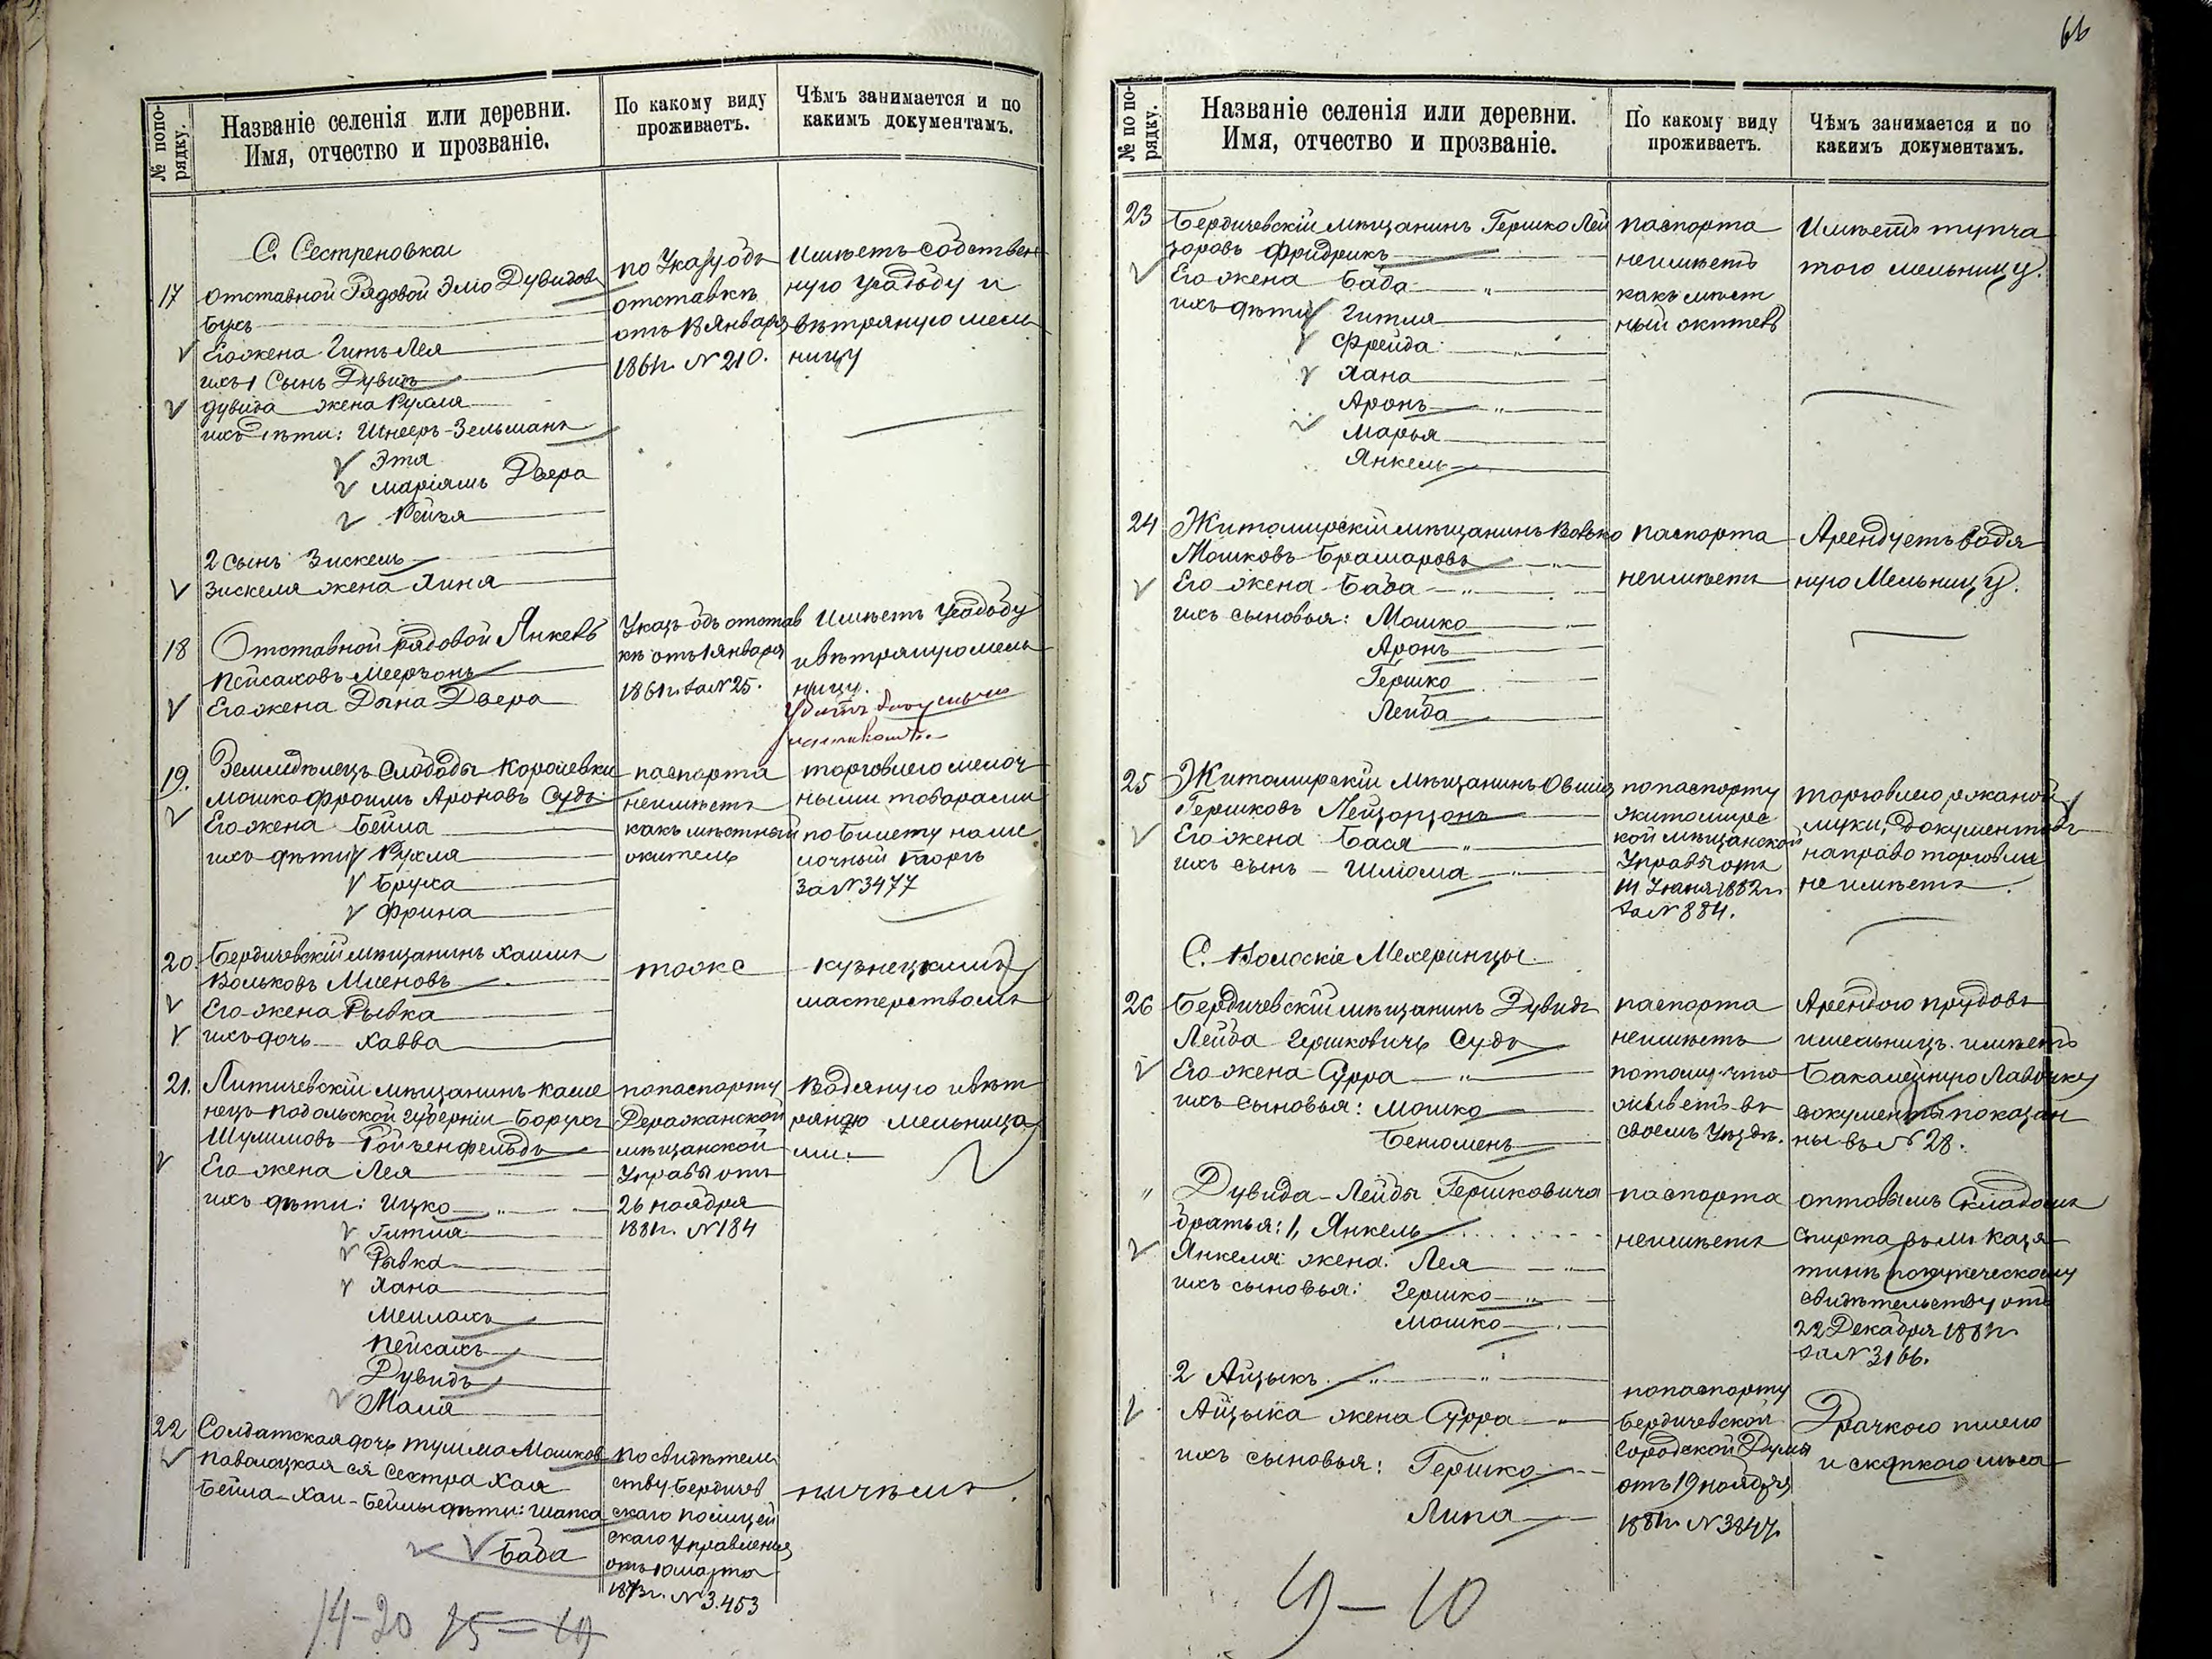 66
№ по по-
рядку.
Названіе селенія или деревни.
Имя, отчество и прозваніе.
По какому виду
проживаетъ.
Чѣмъ занимается и по
какимъ документамъ.
С. Сестреновка
17
Отставной Рядовой Эліо Дувидов
Букъ
Его жена Гить Лея
ихъ 1 Сынъ Дувидъ
Дувида жена Рухля
ихъ дѣти: Шнееръ-Зельманъ
Этя
Маріямъ Двера
Рейзя
2 сынъ Зискель
Зискеля жена Хиня
по Указу объ
отставкѣ
отъ 13 Января
1861г. № 210.
Имѣетъ собствен
ную усадьбу и
вѣтряную мель
ницу
18
Отставной рядовой Янкель
Пейсаховъ Мееръонъ
Его жена Двера
Указъ объ отстав
кѣ отъ 1 Января
1861г. за № 25.
Имѣетъ Усадьбу
и вѣтряную мель
ницу.
19.
Земледѣлецъ Слободы Королевки
Мошко Фроимъ Ароновъ Судъ
Его жена Бейла
ихъ дѣти Рухля
Бруха
Фрина
паспорта
неимѣетъ
какъ мѣстный
житель
торговлею мелоч
ными товарами
по билету на ме
лочный торгъ
за № 3477
20.
Бердичевскій мѣщанинъ Хаимъ
Вольковъ
Его жена Рывка
ихъ дочь Хавва
тоже
кузнецкимъ
мастерствомъ
21.
Литичевскій мѣщанинъ Каме
нецъ Подольской Губерніи Борухъ
Шулимовъ Ройзенфельдъ
Его жена Лея
ихъ дѣти: Ицко
Гитля
Рывка
Хана
Меилахъ
Пейсахъ
Дувидъ
Маля
попаспорту
Деражнянской
мѣщанской
Управы отъ
26 ноября
1881г. № 184
Водяную и вѣт
ряную мельница
ми.
22
Солдатская дочь Мошков
Паволоцкая ея Сестра Хая
Бейла Хаи-Бейлы дѣти: Шапса
Баба
по свидѣтель
ству Бердичев
скаго полицей
скаго Управленія
отъ 10 марта
1873г. № 3.453
ничѣмъ.
14-20 15=19
№ по по-
рядку.
Названіе селенія или деревни.
Имя, отчество и прозваніе.
По какому виду
проживаетъ.
Чѣмъ занимается и по
какимъ документамъ.
23
Бердичевскій мѣщанинъ Гершко Лей
зоровъ Фридрихъ
Его жена Баба
ихъ дѣти Гитля
Фрейда
Хана
Аронъ
Марья
Янкель
паспорта
неимѣетъ
какъ мѣст
ный житель
Имѣетъ тупча
тою мельницу.
24
Житомирскій мѣщанинъ Волько
Мошковъ Брамаровъ
Его жена Баба
ихъ сыновья: Мошко
Аронъ
Гершко
Лейба
паспорта
неимѣетъ
Арендуетъ водя
ную Мельницу.
25
Житомирскій Мѣщанинъ Овшія
Гершковъ Лейзорзонъ
Его жена Бася
ихъ сынъ Шлома
попаспорту
житомирс
кой мѣщанской
Управы отъ
111 Іюня 1882г.
за № 884.
торговлею ржаной
муки, документовъ
на право торговли
не имѣетъ.
С. Волоскіе Мехеринцы.
26
Бердичевскій мѣщанинъ Дувидъ
Лейба Гершковичъ Судъ
Его жена Сурра
ихъ сыновья: Мошко
Бенюменъ
паспорта
неимѣетъ
потому что
живетъ въ
своемъ уѣздѣ.
Арендою прудовъ
и мельницъ. имѣетъ
Бакалейную Лавочку
документы показан
ны въ № 28.
"
Дувида-Лейбы Гершковича
братья: 1, Янкель
Янкеля жена: Лея
ихъ сыновья: Гершко
Мошко
паспорта
неимѣетъ
оптовымъ Складомъ
спирта въ м. Казя
тинѣ по купеческому
свидѣтельству отъ
22 Декабря 1881г.
за № 3166.
2 Айзыкъ
Айзыка жена Сурра
ихъ сыновья: Гершко
Липа
попаспорту
Бердичевской
Городской Думы
отъ 19 ноября
1881г. № 3847.
9-10